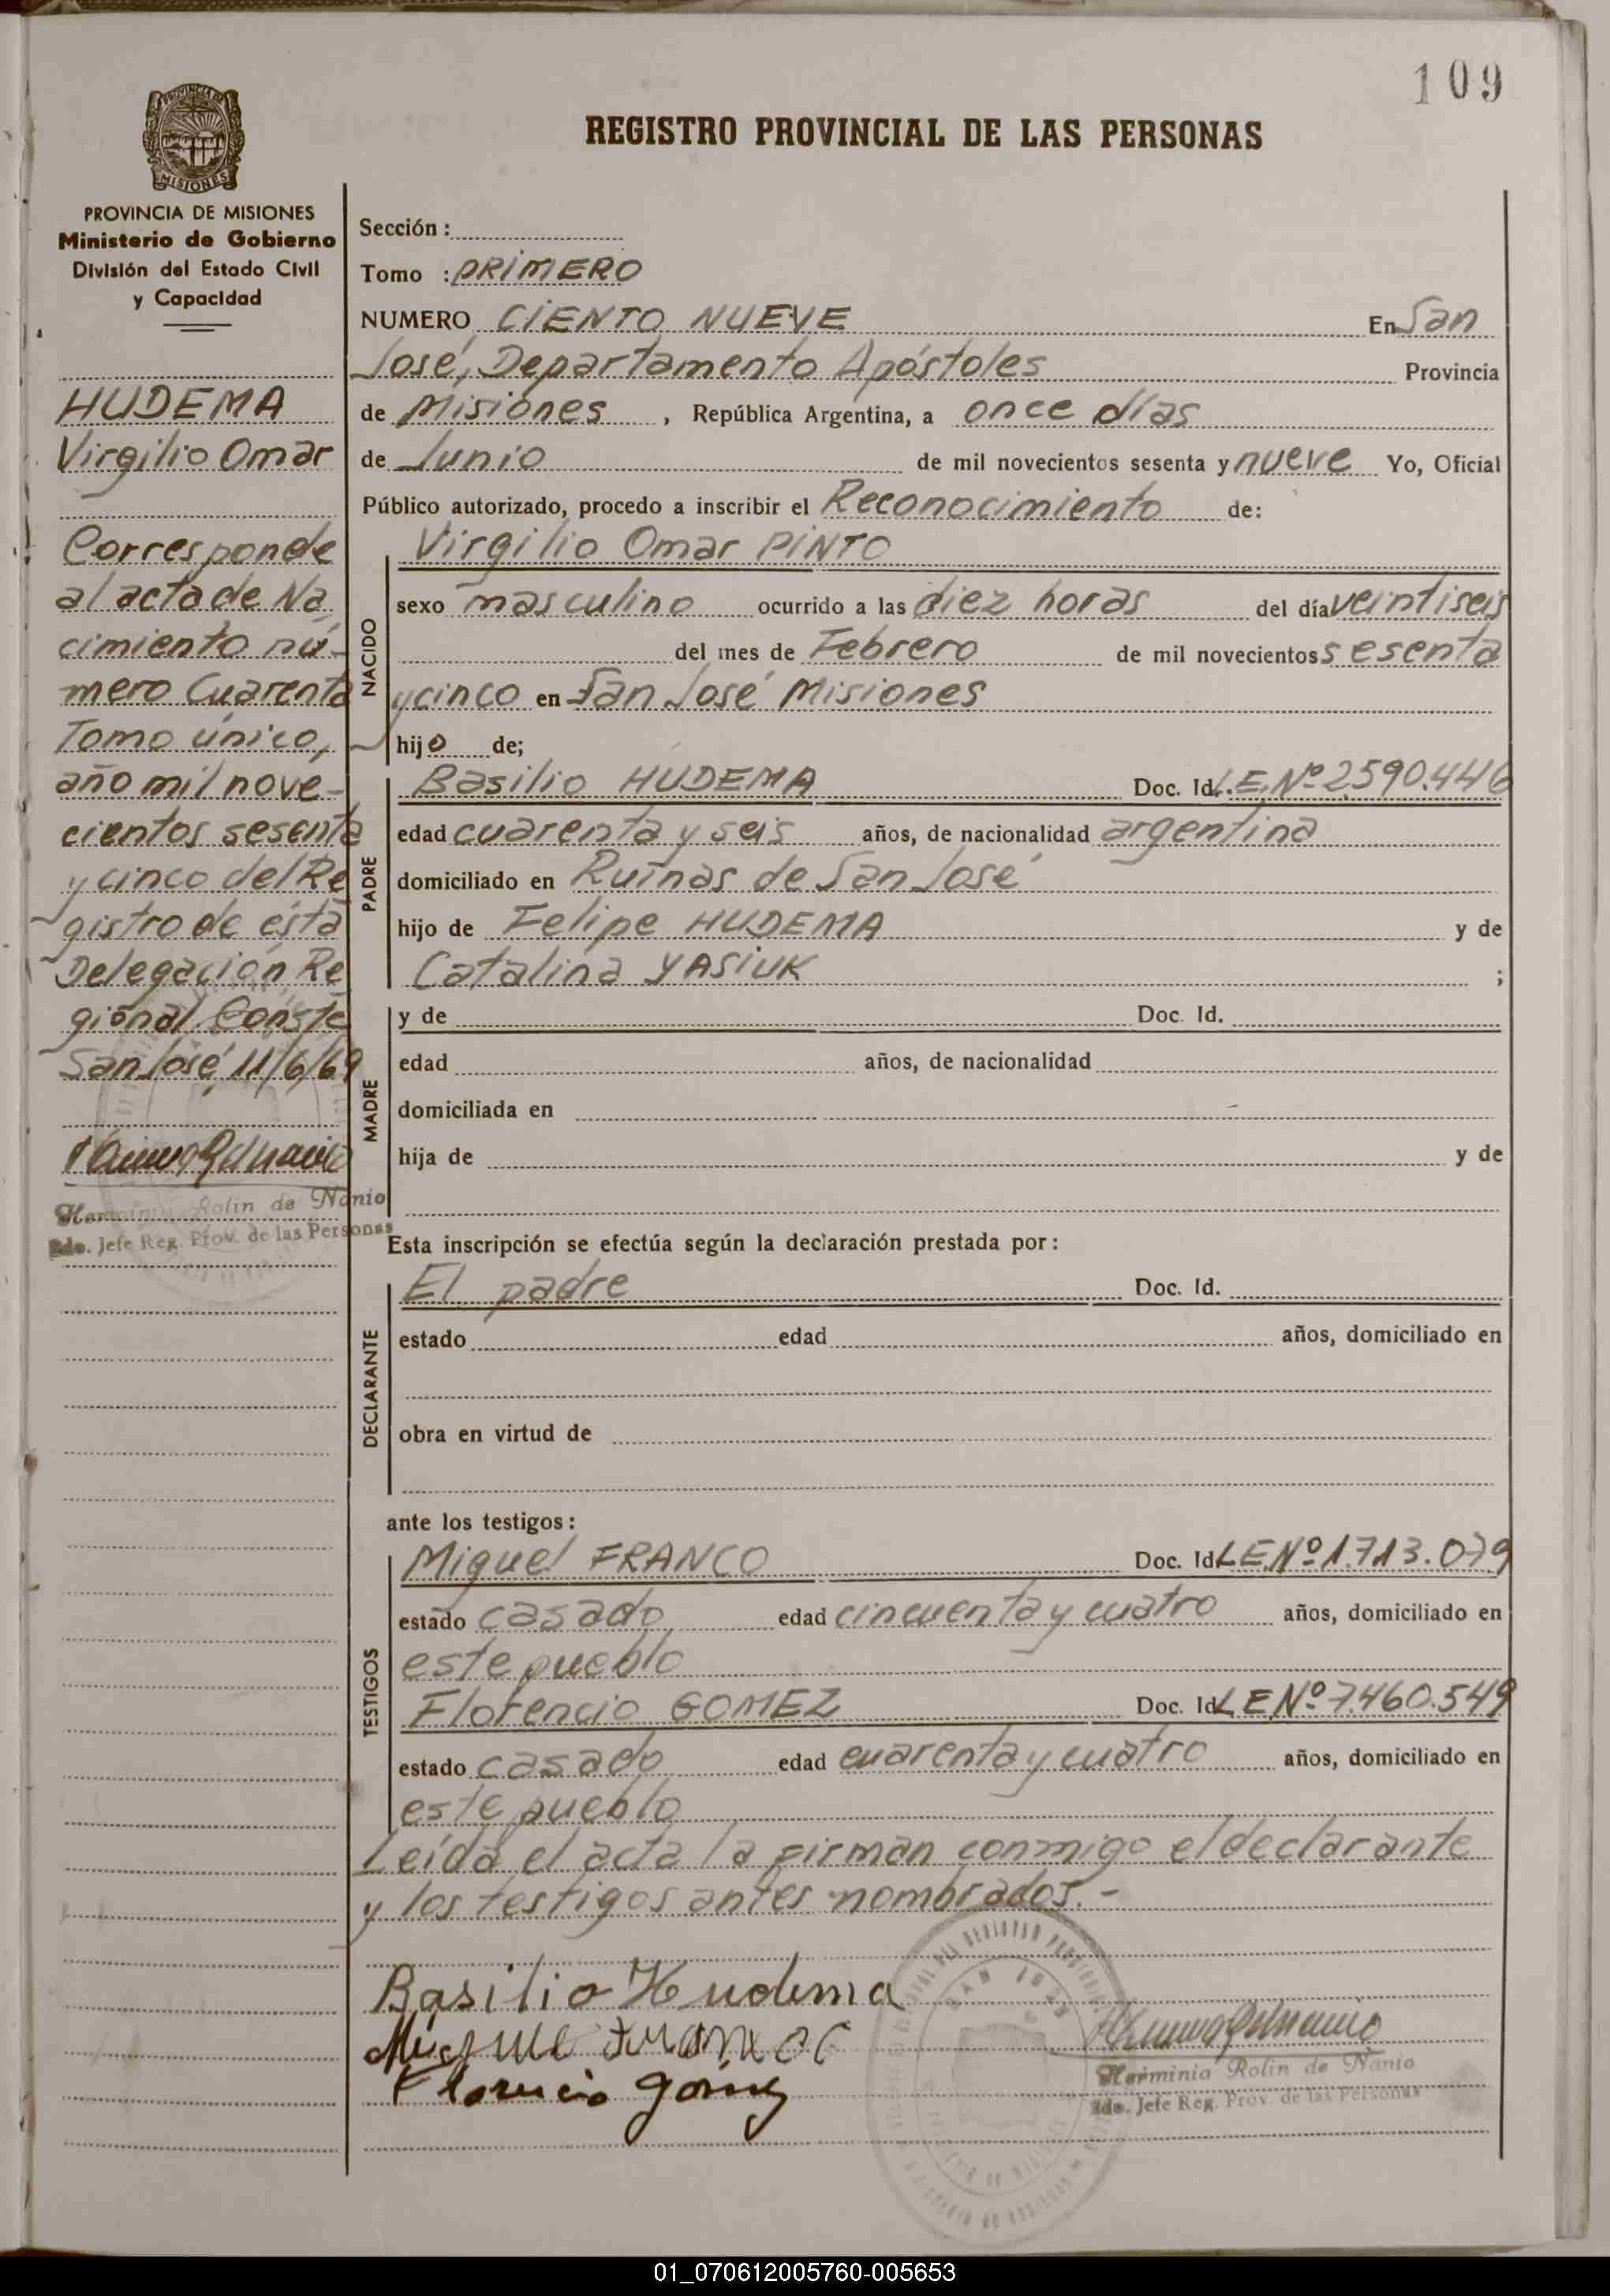 109
REGISTRO PROVINCIAL DE LAS PERSONAS
PROVINCIA DE MISIONES
Ministerio de Gobierno
División del Estado Civil
y Capacidad
HUDEMA
Virgilio Omar
Corresponde
al acta de Na
cimiento nú-
mero Cuarenta
Tomo único,
año mil nove-
cientos sesenta
y cinco del Re
gistro de ésta
Delegación Re
gional. Conste
San José 11/6/69
Herminia Rolin de Nanio
2do. Jefe Reg. Prov. de las Personas
Sección :
Tomo : PRIMERO
NUMERO CIENTO NUEVE En San
José, Departamento Apóstoles Provincia
de Misiones , República Argentina, a once días
de Junio de mil novecientos sesenta y nueve Yo, Oficial
Público autorizado, procedo a inscribir el Reconocimiento de:
NACIDO
Virgilio Omar PINTO
sexo masculino ocurrido a las diez horas del día veintiseis
del mes de Febrero de mil novecientos sesenta
y cinco en San José Misiones
hijo de;
PADRE
Basilio HUDEMA Doc. Id. L.E.Nº 2.590.446
edad cuarenta y seis años, de nacionalidad argentina
domiciliado en Ruinas de San José
hijo de Felipe HUDEMA y de
Catalina YASIUK ;
MADRE
y de Doc. Id.
edad años, de nacionalidad
domiciliada en
hija de y de
Esta inscripción se efectúa según la declaración prestada por :
DECLARANTE
El padre Doc. Id.
estado edad años, domiciliado en
obra en virtud de
ante los testigos :
TESTIGOS
Miguel FRANCO Doc. Id. L.E.Nº 1.713.079
estado casado edad cincuenta y cuatro años, domiciliado en
este pueblo
Florencio GOMEZ Doc. Id. L E Nº 7.460.549
estado casado edad cuarenta y cuatro años, domiciliado en
este pueblo
Leída el acta la firman conmigo el declarante
y los testigos antes nombrados.-
Basilio Hudema
Florencio Gomez
Herminia Rolin de Nanio
2do. Jefe Reg. Prov. de las Personas
01_070612005760-005653